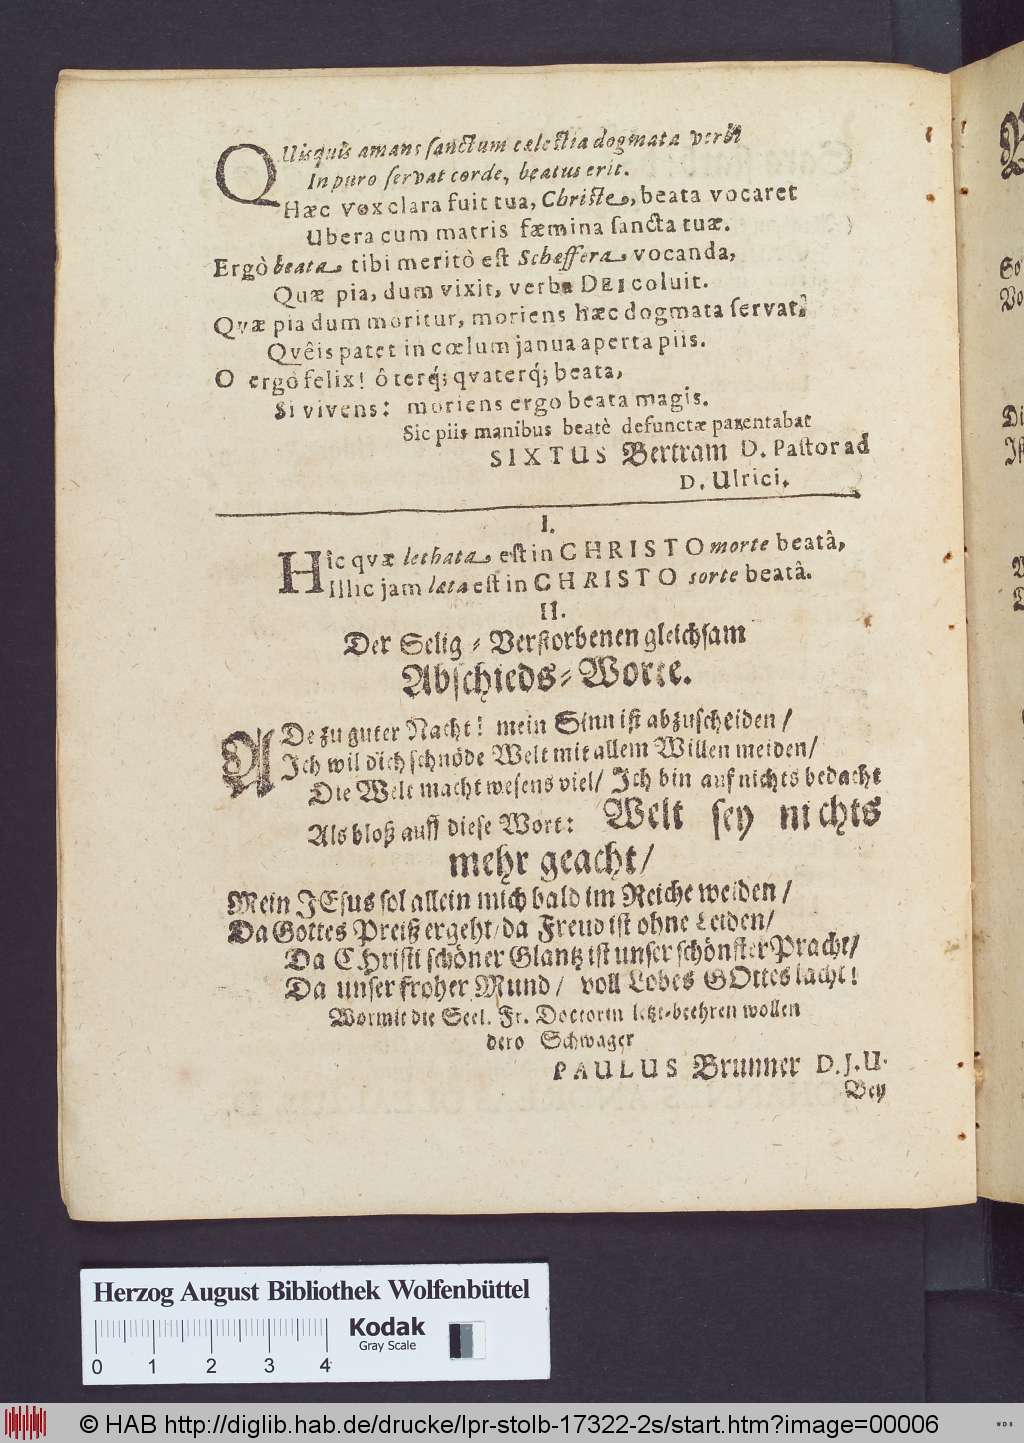 QUisquis amans sanctum cælestia dogmata verbi
In puro servat corde, beatus erit.
Hæc vox clara fuit tua, Christe, beata vocaret
Ubera cum matris fæmina sancta tuæ.
Ergò beata tibi meritò est Schæffera vocanda,
Quæ pia, dum vixit, verba DEI coluit.
Qvæ pia dum moritur, moriens hæc dogmata servat,
Qvêis patet in cœlum janua aperta piis.
O ergò felix! ô terq́; qvaterq́; beata,
Si vivens: moriens ergo beata magis.
Sic piis manibus beatè defunctæ parentabat
SIXTUS Bertram D. Pastor ad
D. Ulrici.
I.
Hîc qvæ lethata est in CHRISTO morte beatâ,
Illic jam læta est in CHRISTO sorte beatâ.
II.
Der Selig-Verstorbenen gleichsam
Abschieds-Worte.
ADe zu guter Nacht! mein Sinn ist abzuscheiden /
Ich wil dich schnöde Welt mit allem Willen meiden /
Die Welt macht wesens viel / Ich bin auf nichts bedacht
Als bloß auff diese Wort: Welt sey nichts
mehr geacht /
Mein JEsus sol allein mich bald im Reiche weiden /
Da Gottes Preiß ergeht / da Freud ist ohne Leiden /
Da CHristi schöner Glantz ist unser schönster Pracht /
Da unser froher Mund / voll Lobes GOttes lacht!
Wormit die Seel. Fr. Doctorin letzt-beehren wollen
dero Schwager
PAULUS Brunner D.J.U.
Bey
Herzog August Bibliothek Wolfenbüttel
Kodak
Gray Scale
0 1 2 3 4
© HAB http://diglib.hab.de/drucke/lpr-stolb-17322-2s/start.htm?image=00006